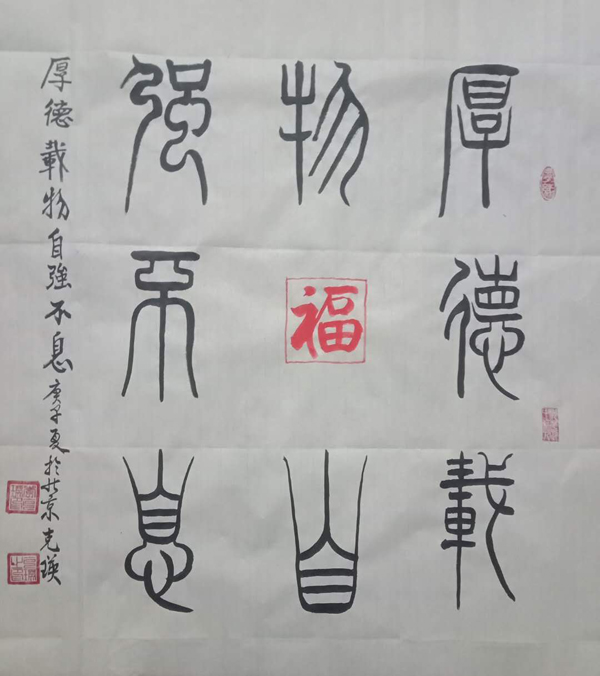 厚德載
物福自
强不息
厚德載物自強不息庚子夏於北京克瑛